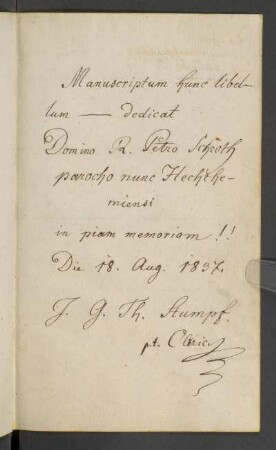 Manuscriptum hunc libel-
lum — dedicat
Domino R. Petro Schroth
parocho nunc Hechthe-
miensi
in piam memoriam!!
Die 18. Aug. 1837.
J. G. Th. Stumpf.
pt. Cleric